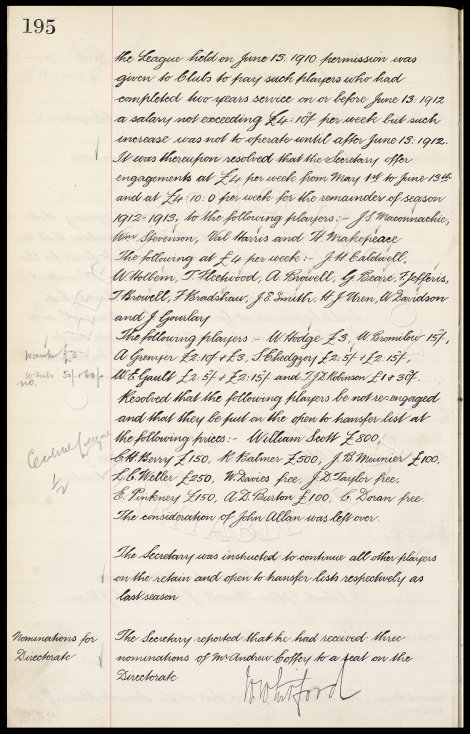 195
the League held on June 13. 1910 permission was
given to Clubs to pay such players who had
completed two years service on or before June 13. 1912
a salary not exceeding £4:10/- per week but such
increase was not to operate until after June 13. 1912.
It was thereupon resolved that the Secretary offer
engagements at £4 per week from May 1st to June 13th
and at £4:10:0 per week for the remainder of season
1912-1913, to the following players:- J S Maconnachie,
Wm Stevenson, Val Harris and H Makepeace
The following at £4 per week:- J. H Caldwell,
W Holbem, T. Fleetwood, A Browell, G Beare, F Jefferis,
T Browell, F Bradshaw, J E Smith, H J Wren, W Davidson
and J Gourlay
The following players:- W Hodge £3, W. Bromilow 15/-,
Wants £3
A Grenyer £2:10/- & £3, S Chedgzoy £2:5/- & £2:15/-,
Wants 50/- & 60/-
no.
W. E Gault £2:5/- & £2:15/- and T. J D Robinson £1 & 30/-.
Resolved that the following players be not re-engaged
and that they be put on the open to transfer list at
the following prices:- William Scott £800,
C. H. Berry £150, R Balmer £500, J. B Meunier £100,
L. C. Weller £250, W. Davies free, J. D. Taylor free.
E. Pinkney £150, A. D. Burton £100, C. Doran free.
The consideration of John Allan was left over.
The Secretary was instructed to continue all other players
on the retain and open to transfer lists respectively as
last season
Nominations for
Directorate
The Secretary reported that he had received three
nominations of Mr Andrew Coffey to a seat on the
Directorate